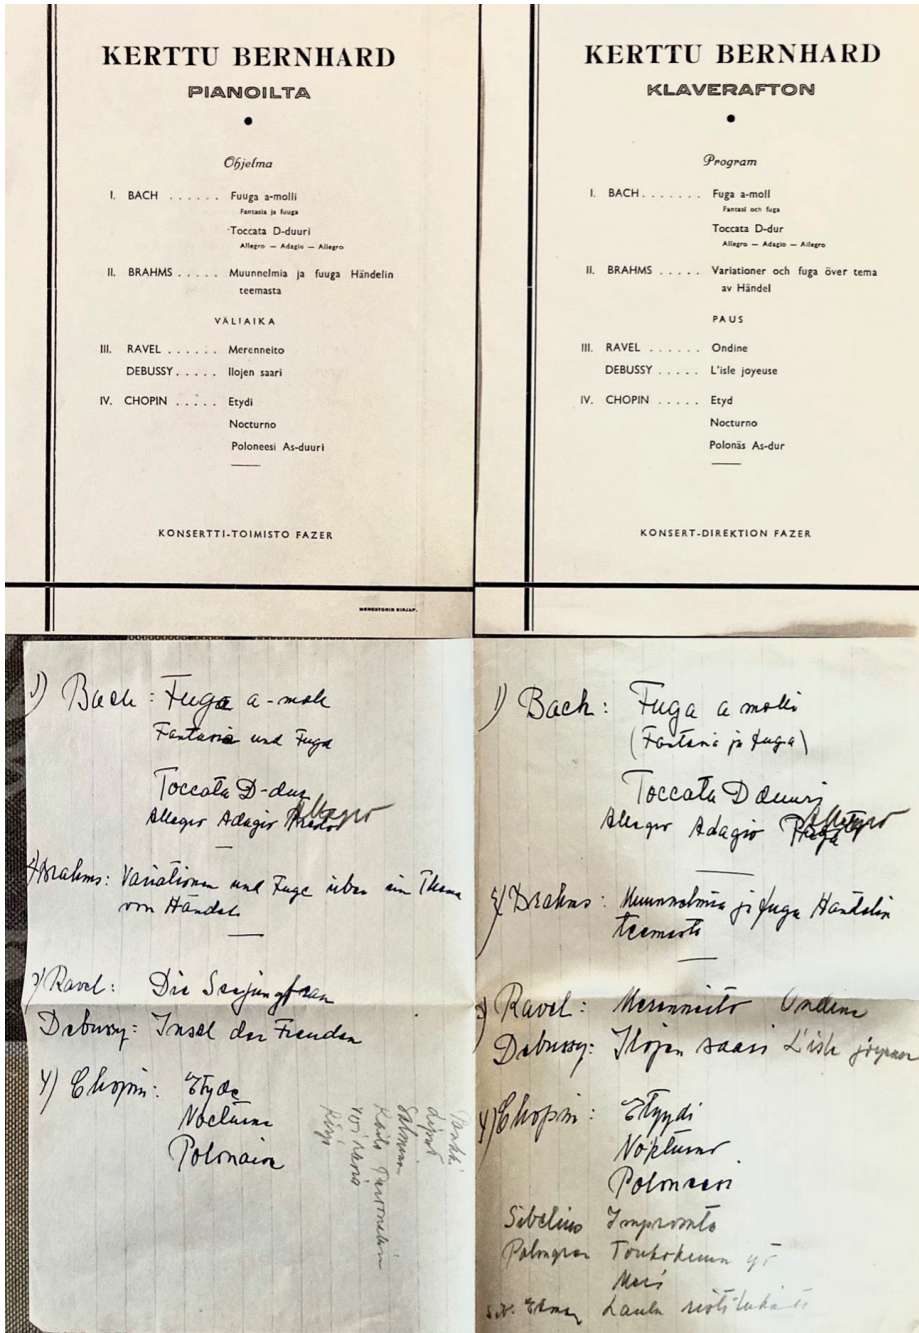 KERTTU BERNHARD
PIANOILTA
Ohjelma
I. BACH . . . . . . Fuuga a-molli
Fantasia ja fuuga
Toccata D-duuri
Allegro — Adagio — Allegro
II. BRAHMS . . . . . Muunnelmia ja fuuga Händelin
teemasta
VÄLIAIKA
III. RAVEL . . . . . . Merenneito
DEBUSSY . . . . . Ilojen saari
IV. CHOPIN . . . . . Etydi
Nocturno
Poloneesi As-duuri
KONSERTTI-TOIMISTO FAZER
MERCATORIN KIRJAP.
KERTTU BERNHARD
KLAVERAFTON
Program
I. BACH . . . . . . . Fuga a-moll
Fantasi och fuga
Toccata D-dur
Allegro — Adagio — Allegro
II. BRAHMS . . . . . Variationer och fuga över tema
av Händel
PAUS
III. RAVEL . . . . . . Ondine
DEBUSSY . . . . . L'isle joyeuse
IV. CHOPIN . . . . . Etyd
Nocturno
Polonäs As-dur
KONSERT-DIREKTION FAZER
1) Bach: Fuga a-moll
Fantasie und Fuga
Toccata D-dur
Allegro Adagio Allegro
2) Brahms: Variationen und Fuge über ein Thema
von Händel
3) Ravel: Die Seejungfrau
Debussy: Insel der Freuden
4) Chopin: Etyde
Nocturne
Polonaise
Pankki
Salminen
Kirje
1) Bach: Fuga a molli
(Fantasia ja fuga)
Toccata D duuri
Allegro Adagio Allegro
2) Brahms: Muunnelmia ja fuga Händelin
teemasta
3) Ravel: Merenneito Ondine
Debussy: Ilojen saari L'isle joyeuse
4) Chopin: Etyydi
Nokturno
Polonesi
Sibelius Impromtu
Palmgren Toukokuun yö
Meri
Laulu